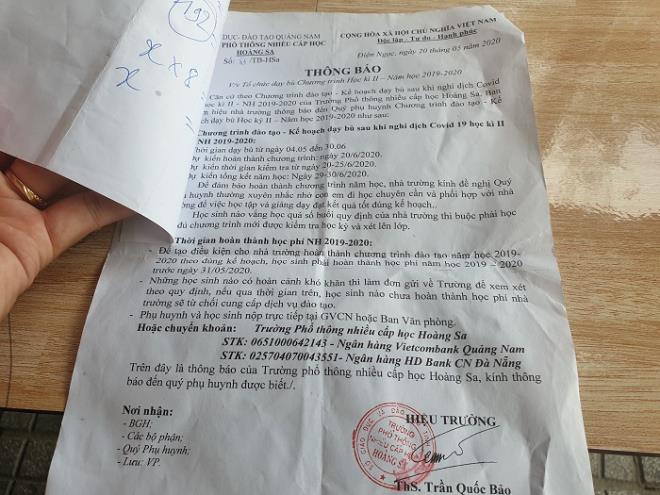 192
x x 8
x
DỤC- ĐÀO TẠO QUẢNG NAM
PHỔ THÔNG NHIỀU CẤP HỌC
HOÀNG SA
/TB-HSa
CỘNG HÒA XÃ HỘI CHỦ NGHĨA VIỆT NAM
Độc lập - Tự do - Hạnh phúc
Điện Ngọc, ngày 20 tháng 05 năm 2020
THÔNG BÁO
V/v Tổ chức dạy bù Chương trình Học kì II – Năm học 2019-2020
Căn cứ theo Chương trình đào tạo - Kế hoạch dạy bù sau khi nghỉ dịch Covid
học kì II - NH 2019-2020 của Trường Phổ thông nhiều cấp học Hoàng Sa, Ban
hiệu nhà trường thông báo đến Quý phụ huynh Chương trình đào tạo - Kế
dạy bù Học kỳ II – Năm học 2019-2020 như sau:
Chương trình đào tạo - Kế hoạch dạy bù sau khi nghỉ dịch Covid 19 học kì II
NH 2019-2020:
Thời gian dạy bù từ ngày 04.05 đến 30.06
Dự kiến hoàn thành chương trình: ngày 20/6/2020.
Dự kiến thời gian kiểm tra từ ngày 20-25/6/2020.
Dự kiến tổng kết năm học: Ngày 29-30/6/2020.
Để đảm bảo hoàn thành chương trình năm học, nhà trường kính đề nghị Quý
huynh thường xuyên nhắc nhở con em đi học chuyên cần và phối hợp với nhà
để việc học tập và giảng dạy đạt kết quả tốt đúng kế hoạch..
Học sinh nào vắng học quá số buổi quy định của nhà trường thì buộc phải học
đủ chương trình mới được kiểm tra học kỳ và xét lên lớp.
Thời gian hoàn thành học phí NH 2019-2020:
- Để tạo điều kiện cho nhà trường hoàn thành chương trình đào tạo năm học 2019-
2020 theo đúng kế hoạch, học sinh phải hoàn thành học phí năm học 2019 – 2020
trước ngày 31/05/2020.
- Những học sinh nào có hoàn cảnh khó khăn thì làm đơn gửi về Trường để xem xét
theo quy định, nếu qua thời gian trên, học sinh nào chưa hoàn thành học phí nhà
trường sẽ từ chối cung cấp dịch vụ đào tạo.
- Phụ huynh và học sinh nộp trực tiếp tại GVCN hoặc Ban Văn phòng.
Hoặc chuyển khoản: Trường Phổ thông nhiều cấp học Hoàng Sa
STK: 0651000642143 - Ngân hàng Vietcombank Quảng Nam
STK: 025704070043551- Ngân hàng HD Bank CN Đà Nẵng
Trên đây là thông báo của Trường phổ thông nhiều cấp học Hoàng Sa, kính thông
báo đến quý phụ huynh được biết./.
Nơi nhận:
- BGH;
- Các bộ phận;
- Quý Phụ huynh;
- Lưu: VP.
HIỆU TRƯỞNG
TRƯỜNG
PHỔ THÔNG
NHIỀU CẤP HỌC
HOÀNG SA
ThS. Trần Quốc Bảo